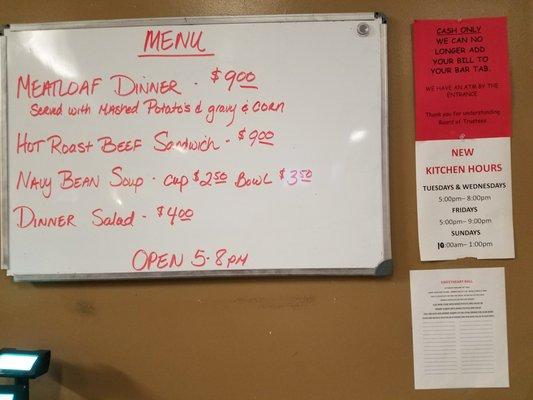 MENU
MEATLOAF DINNER - $9.00
SERVED WITH MASHED POTATO'S & GRAVY & CORN
HOT ROAST BEEF SANDWICH - $9.00
NAVY BEAN SOUP - CUP $2.50 BOWL $3.50
DINNER SALAD - $4.00
OPEN 5-8 PM
CASH ONLY
WE CAN NO
LONGER ADD
YOUR BILL TO
YOUR BAR TAB.
WE HAVE AN ATM BY THE
ENTRANCE
Thank you for understanding
Board of Trustees
NEW
KITCHEN HOURS
TUESDAYS & WEDNESDAYS
5:00pm– 8:00pm
FRIDAYS
5:00pm– 9:00pm
SUNDAYS
10:00am– 1:00pm
SWEETHEART BALL